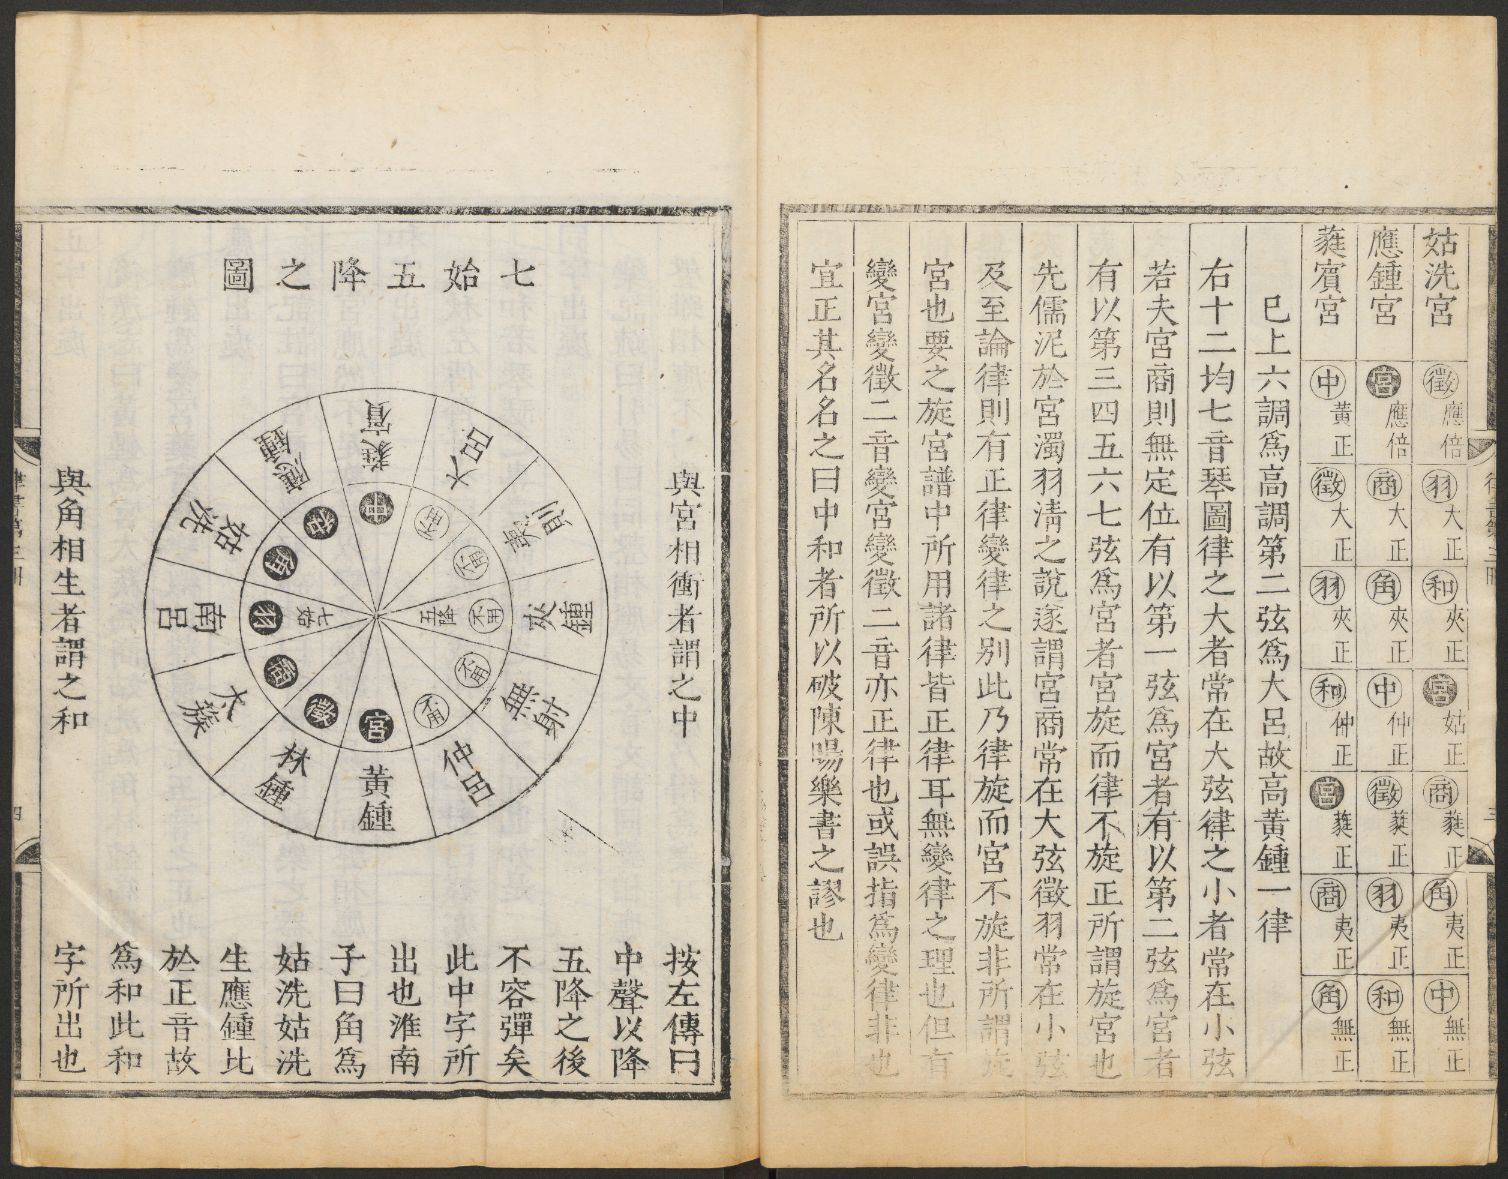 姑洗宮 徵應倍 羽大正 和夾正 宮姑正 商蕤正 角夷正 中無正
應鍾宮 宮應倍 商大正 角夾正 中仲正 徵蕤正 羽夷正 和無正
蕤賓宮 中黃正 徵大正 羽夾正 和仲正 宮蕤正 商夷正 角無正
巳上六調爲高調第二弦爲大呂故高黃鍾一律
右十二均七音琴圖律之大者常在大弦律之小者常在小弦
若夫宮商則無定位有以第一弦爲宮者有以第二弦爲宮者
有以第三四五六七弦爲宮者宮旋而律不旋正所謂旋宮也
先儒泥於宮濁羽淸之說遂謂宮商常在大弦徵羽常在小弦
及至論律則有正律變律之別此乃律旋而宮不旋非所謂旋
宮也要之旋宮譜中所用諸律皆正律耳無變律之理也但有
變宮變徵二音變宮變徵二音亦正律也或誤指爲變律非也
宜正其名名之曰中和者所以破陳暘樂書之謬也
七始五降之圖
與宮相衝者謂之中
蕤賓 中
大呂 不用
夷則 不用
夾鍾 不用
無射 不用
仲呂 不用
黃鍾 宮
林鍾 徵
太蔟 商
南呂 羽
姑洗 角
應鍾 和
七始
五降
與角相生者謂之和
按左傳曰
中聲以降
五降之後
不容彈矣
此中字所
出也淮南
子曰角爲
姑洗姑洗
生應鍾比
於正音故
爲和此和
字所出也